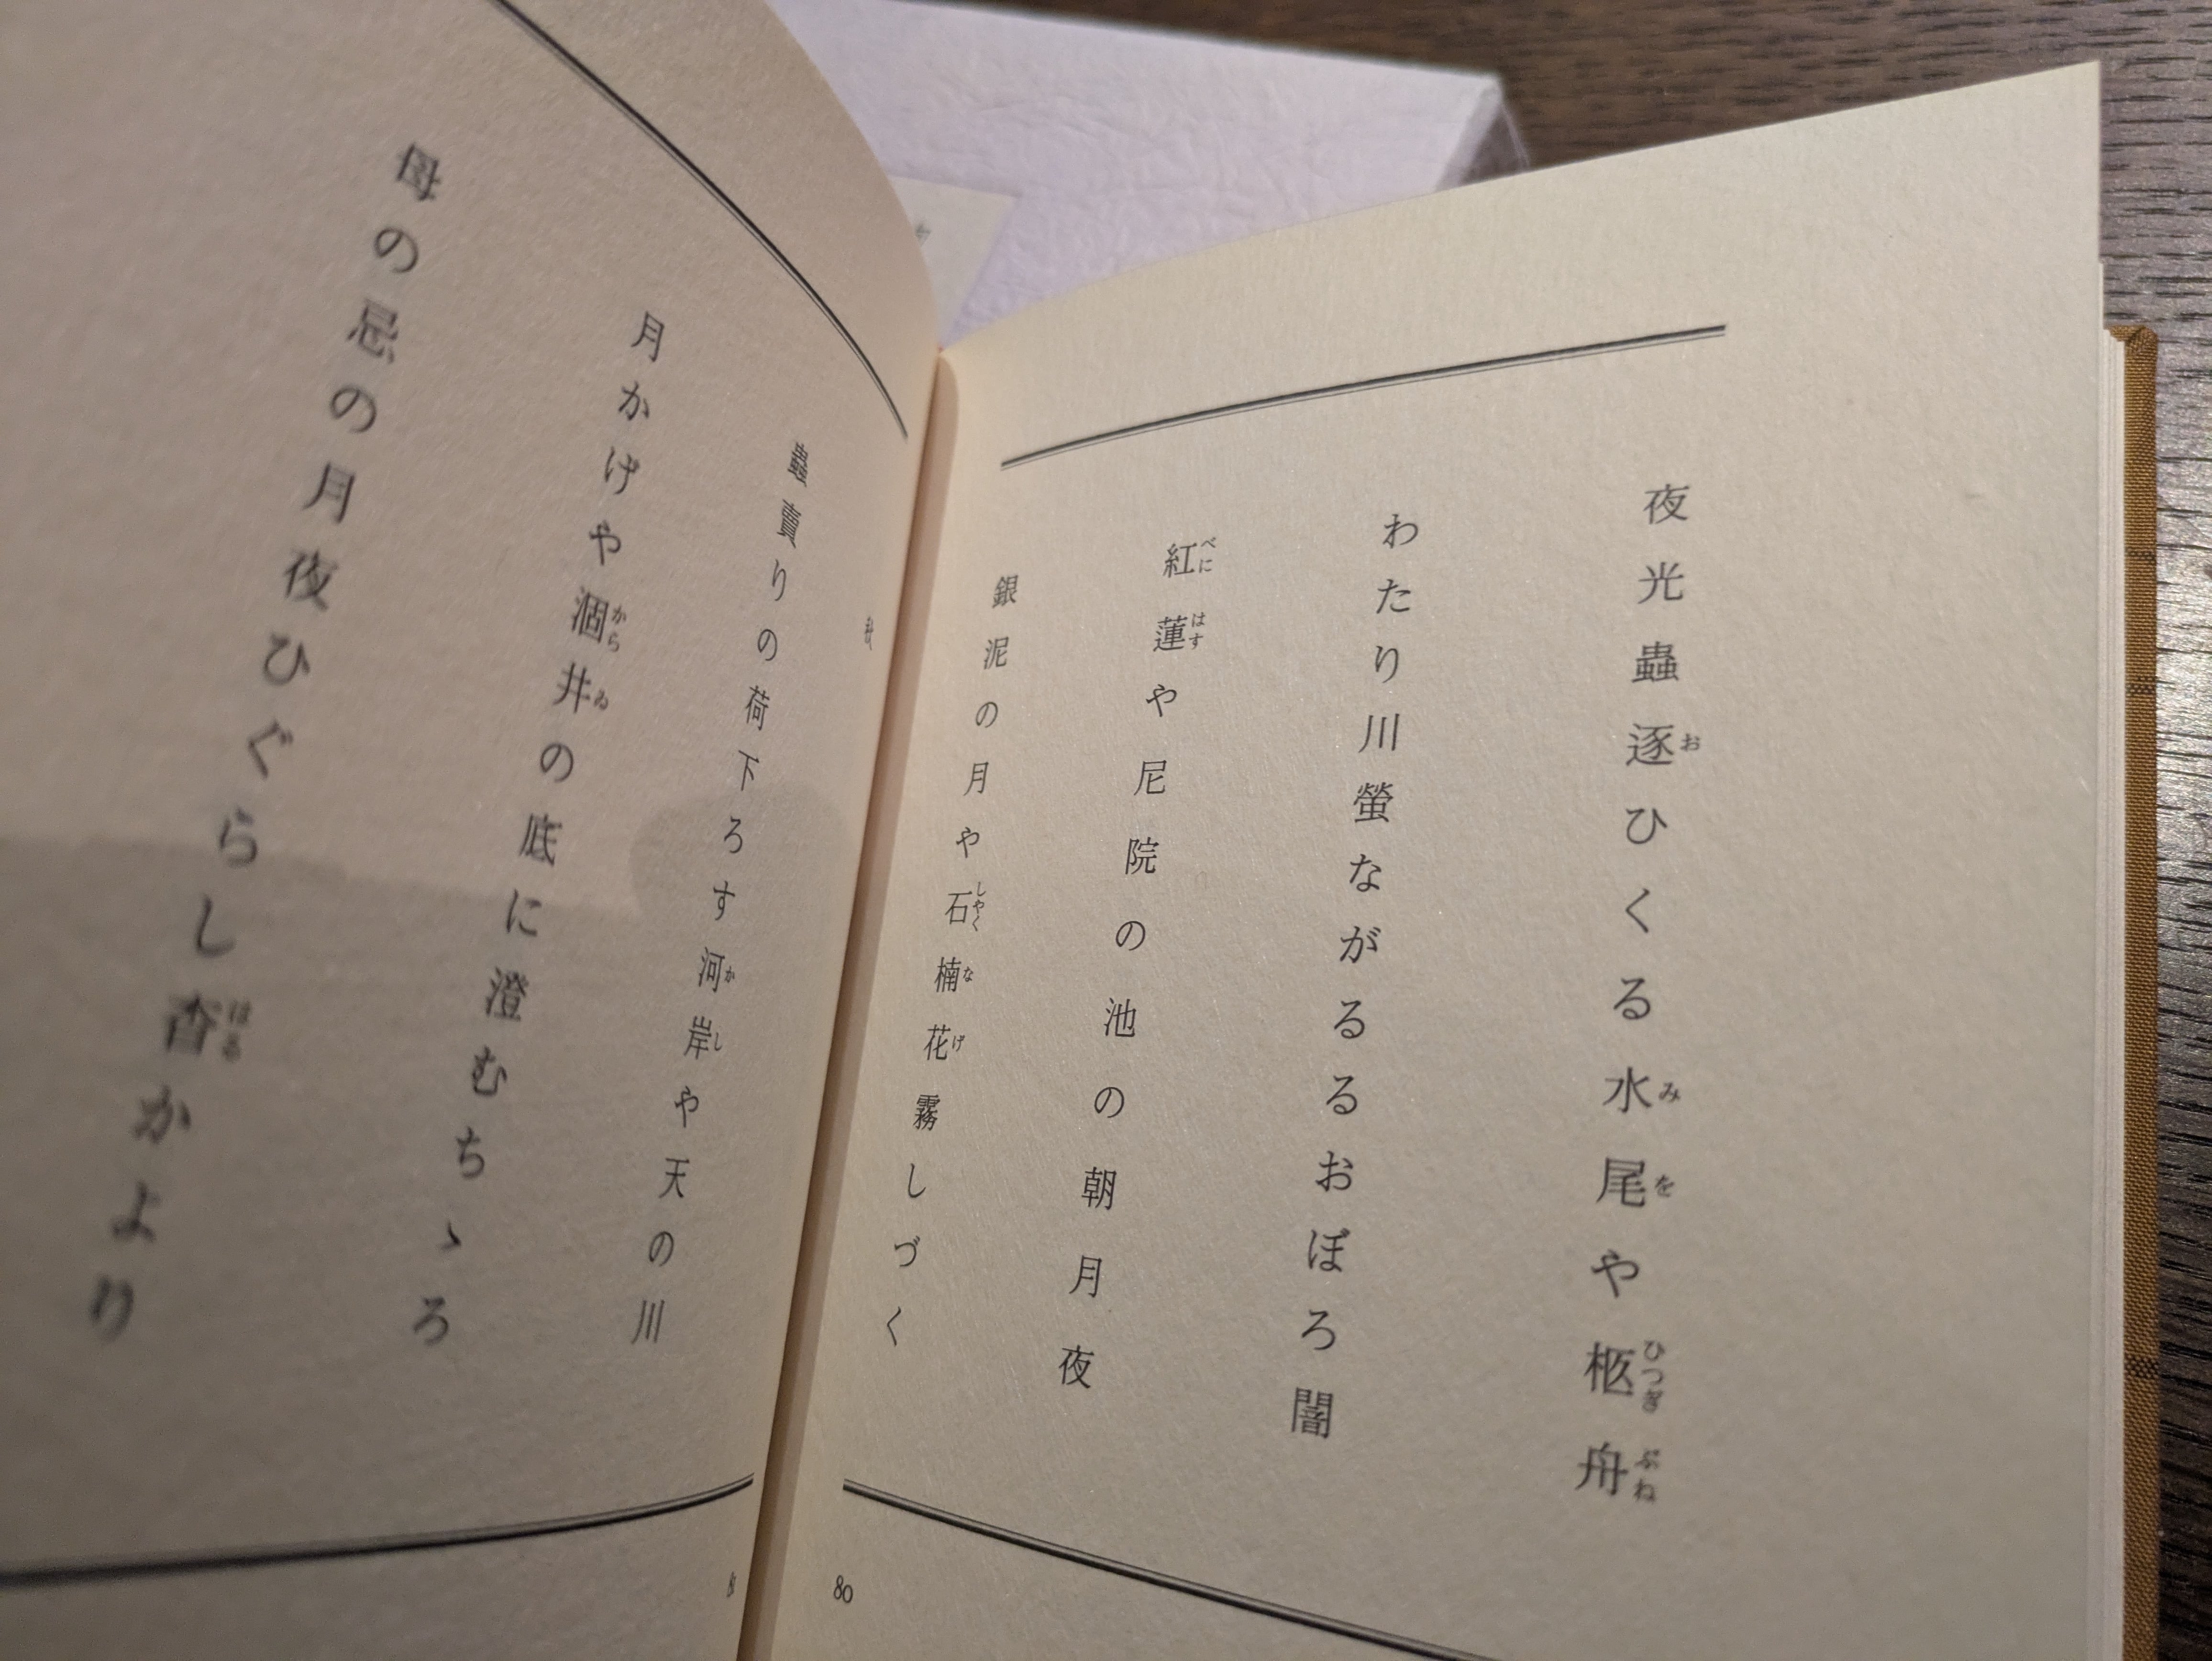 夜光蟲逐ひくる水尾や柩舟
わたり川螢ながるるおぼろ闇
紅蓮や尼院の池の朝月夜
銀泥の月や石楠花霧しづく
80
秋
蟲賣りの荷下ろす河岸や天の川
月かげや涸井の底に澄むちゝろ
母の忌の月夜ひぐらし杳かより